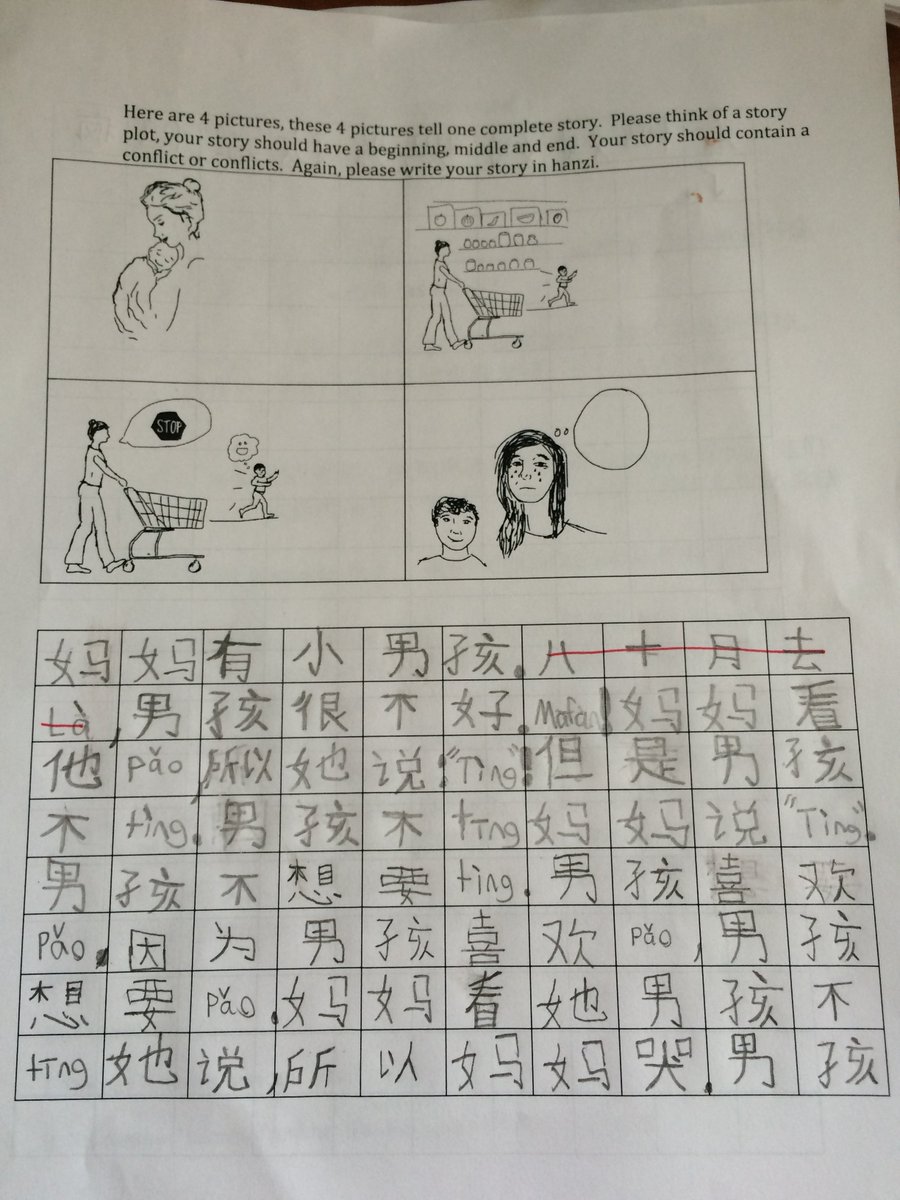 Here are 4 pictures, these 4 pictures tell one complete story. Please think of a story
plot, your story should have a beginning, middle and end. Your story should contain a
conflict or conflicts. Again, please write your story in hanzi.
STOP
妈妈有小男孩。八十月去
Là,男孩很不好。Máfàn!妈妈看
他pǎo,所以她说:"Tíng"!但是男孩
不tíng.男孩不tīng妈妈说"Tíng".
男孩不想要tíng.男孩喜欢
pǎo.因为男孩喜欢pǎo,男孩
想要pǎo.妈妈看她男孩不
tīng她说,所以妈妈哭.男孩